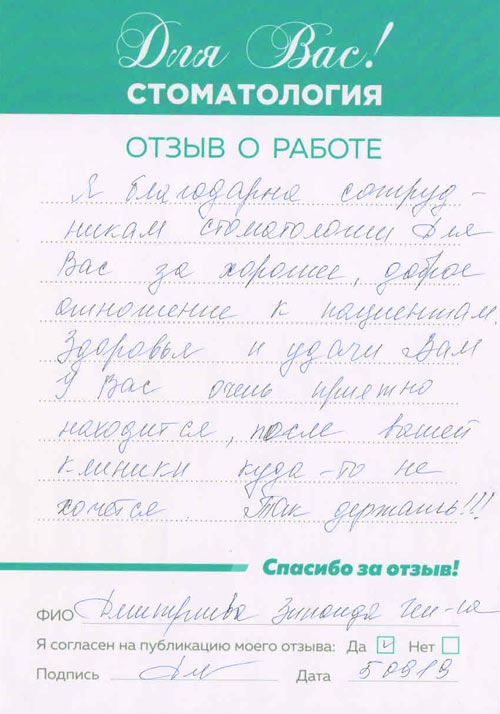 Для Вас!
СТОМАТОЛОГИЯ
ОТЗЫВ О РАБОТЕ
Я благодарна сотруд-
никам стоматологии Для
Вас за хорошее, доброе
отношение к пациентам.
Здоровья и удачи Вам
У Вас очень приятно
находится, после вашей
клиники куда-то не
хочется. Так держать!!!
Спасибо за отзыв!
ФИО Зинаида
Я согласен на публикацию моего отзыва: Да Нет
Подпись Дата 50919